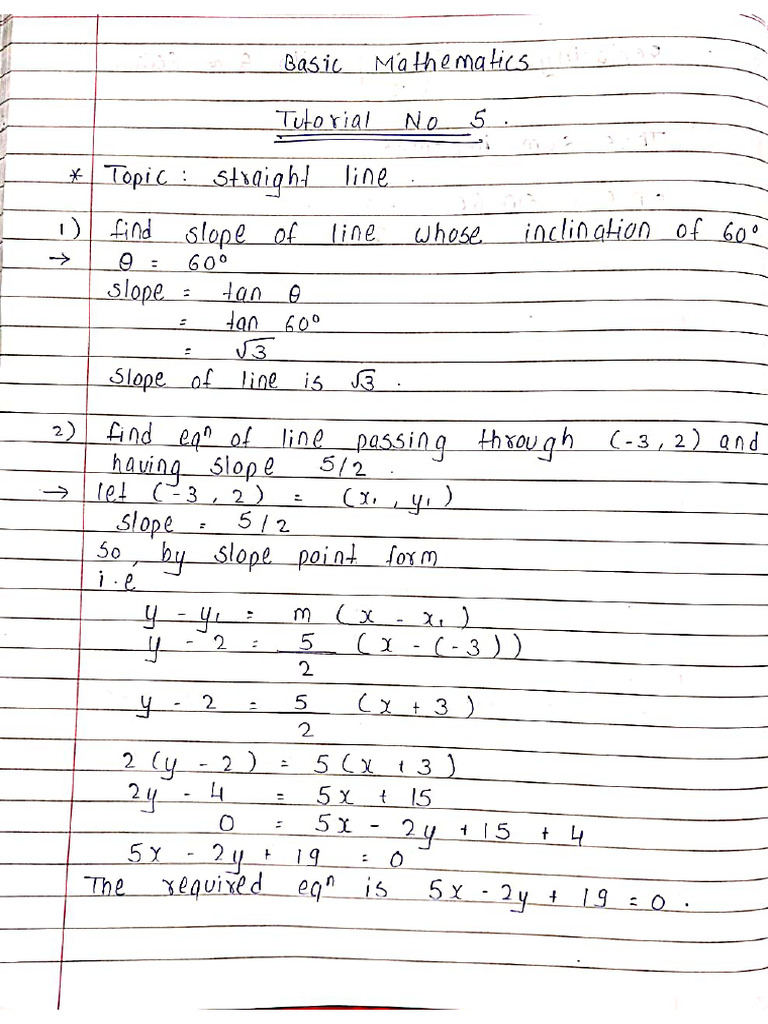 Basic Mathematics
Tutorial No 5.
* Topic : straight line.
1) find slope of line whose inclination of 60°
→ θ = 60°
slope = tan θ
= tan 60°
= √3
slope of line is √3.
2) find eqⁿ of line passing through (-3, 2) and
having slope 5/2.
→ let (-3, 2) = (x₁, y₁)
slope = 5/2
So, by slope point form
i.e
y - y₁ = m (x - x₁)
y - 2 = 5/2 (x - (-3))
y - 2 = 5/2 (x + 3)
2 (y - 2) = 5 (x + 3)
2y - 4 = 5x + 15
0 = 5x - 2y + 15 + 4
5x - 2y + 19 = 0
The required eqⁿ is 5x - 2y + 19 = 0.